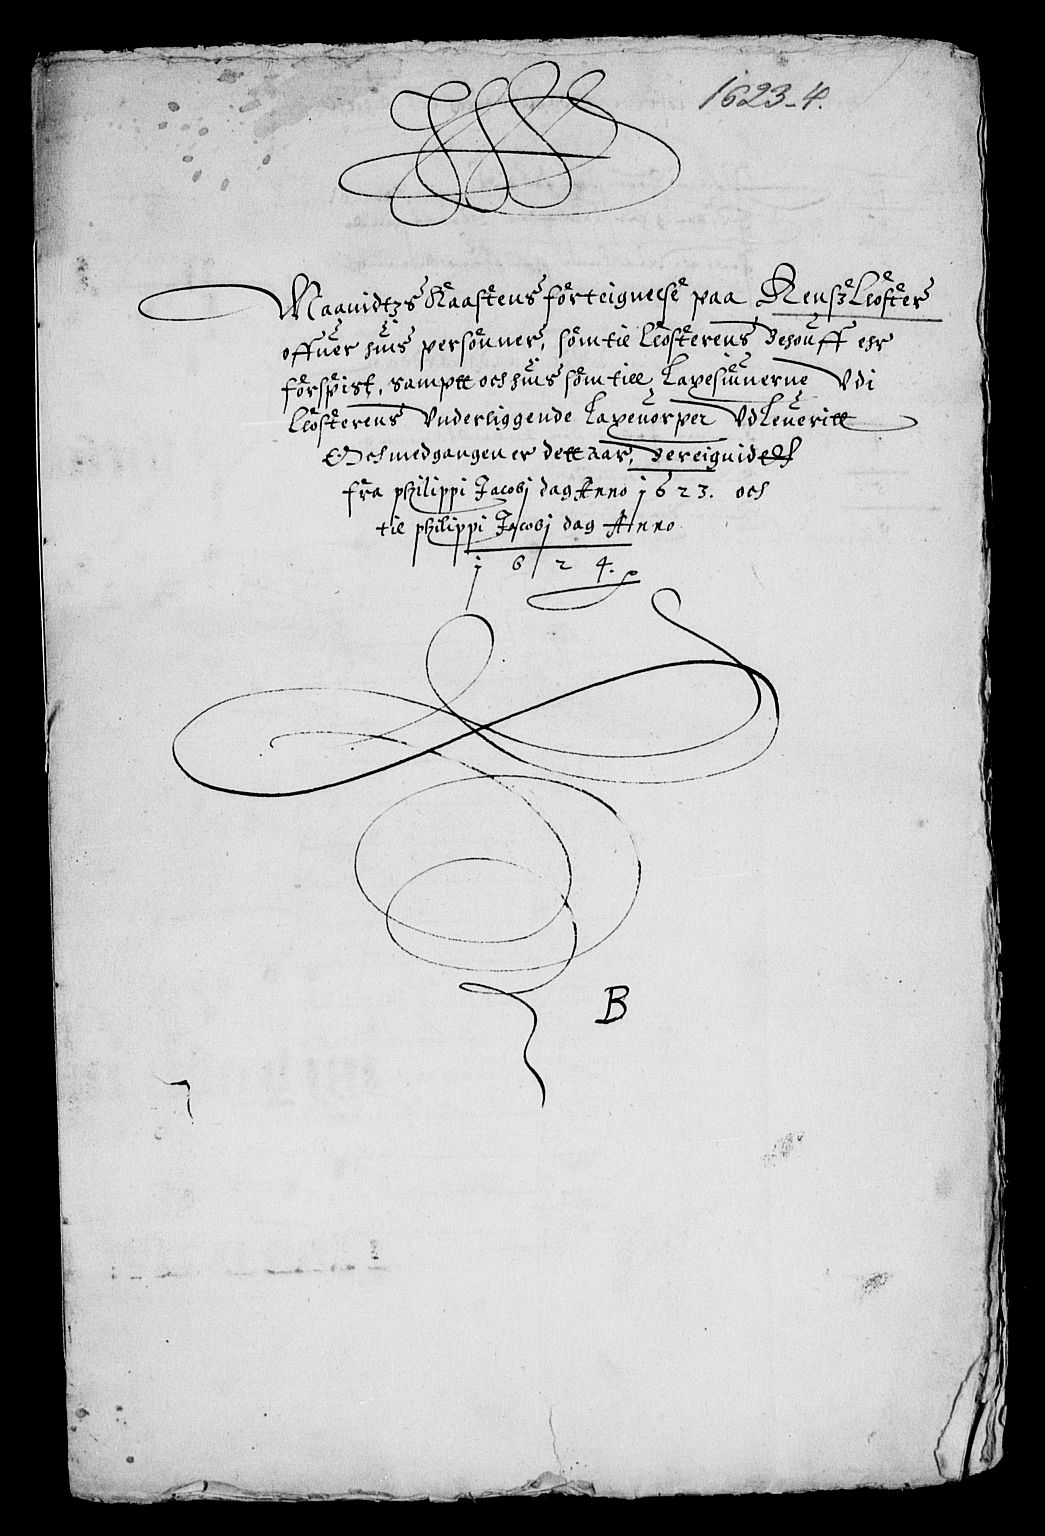 1623-4.
Maanidtzs Kaastens förteignelse paa Rensz Closter
offuer huis persönner, söm til Closterens Behouff ehr
förspist, sampt och huis söm till Laxesiunerne Vdi
Closterens Vnderliggende Laxeuorper Vdleueritt
Och medgangen er dett aar, Bereignidtt
fra philippi Jacobj dag Anno 1623. och
til philippi Jacobj dag Anno
1624.
B